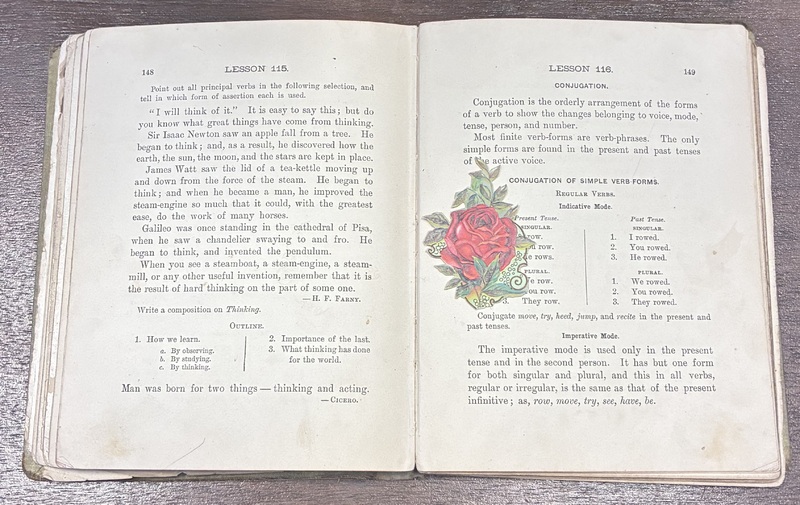 148
LESSON 115.
Point out all principal verbs in the following selection, and
tell in which form of assertion each is used.
"I will think of it." It is easy to say this; but do
you know what great things have come from thinking.
Sir Isaac Newton saw an apple fall from a tree. He
began to think; and, as a result, he discovered how the
earth, the sun, the moon, and the stars are kept in place.
James Watt saw the lid of a tea-kettle moving up
and down from the force of the steam. He began to
think; and when he became a man, he improved the
steam-engine so much that it could, with the greatest
ease, do the work of many horses.
Galileo was once standing in the cathedral of Pisa,
when he saw a chandelier swaying to and fro. He
began to think, and invented the pendulum.
When you see a steamboat, a steam-engine, a steam-
mill, or any other useful invention, remember that it is
the result of hard thinking on the part of some one.
—H. F. FARNY.
Write a composition on Thinking.
OUTLINE.
1. How we learn.
a. By observing.
b. By studying.
c. By thinking.
2. Importance of the last.
3. What thinking has done
for the world.
Man was born for two things — thinking and acting.
—CICERO.
LESSON 116.
149
CONJUGATION.
Conjugation is the orderly arrangement of the forms
of a verb to show the changes belonging to voice, mode,
tense, person, and number.
Most finite verb-forms are verb-phrases. The only
simple forms are found in the present and past tenses
of the active voice.
CONJUGATION OF SIMPLE VERB-FORMS.
REGULAR VERBS.
Indicative Mode.
Present Tense.
SINGULAR.
row.
row.
rows.
PLURAL.
row.
row.
3. They row.
Past Tense.
SINGULAR.
1. I rowed.
2. You rowed.
3. He rowed.
PLURAL.
1. We rowed.
2. You rowed.
3. They rowed.
Conjugate move, try, heed, jump, and recite in the present and
past tenses.
Imperative Mode.
The imperative mode is used only in the present
tense and in the second person. It has but one form
for both singular and plural, and this in all verbs,
regular or irregular, is the same as that of the present
infinitive; as, row, move, try, see, have, be.